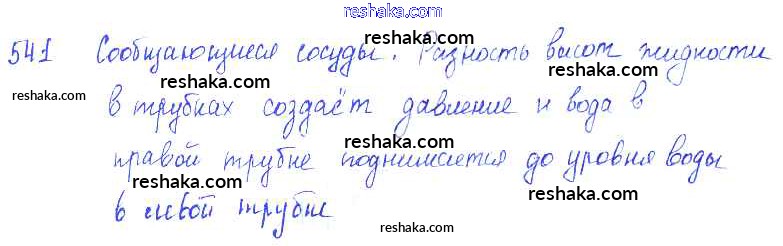 reshaka.com
541 Сообщающиеся сосуды. Разность высот жидкости
reshaka.com
reshaka.com reshaka.com
reshaka.com
в трубках создаёт давление и вода в
reshaka.com
правой трубке поднимается до уровня воды
reshaka.com reshaka.com
в левой трубке
reshaka.com